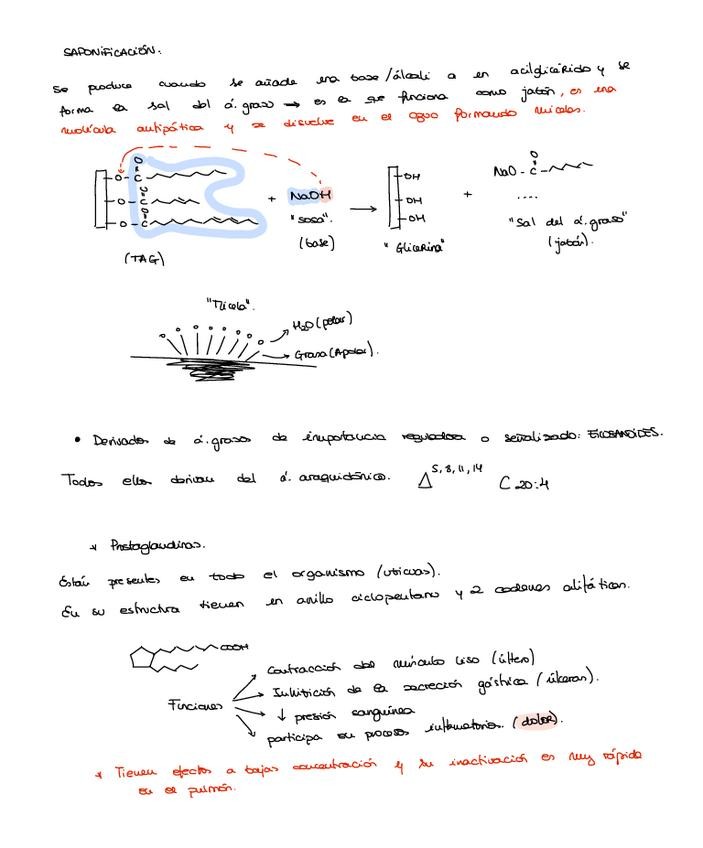 SAPONIFICACIÓN:
Se produce cuando se añade una base/álcali a un acilglicérido y se
forma la sal del á.graso → es la que funciona como jabón, es una
molécula antipática y se disuelve en el agua formando micelas.
O
O - C
O
O - C
O
O - C
+ NaOH
"sosa".
(base)
(TAG)
OH
OH
OH
"Glicerina"
+
O
NaO - C
....
"Sal del á.graso"
(jabón).
"Micela".
H₂O (polar)
Grasa (Apolar).
• Derivados de á.grasos de importancia reguladora o señalizado: EICOSANOIDES.
Todos ellos derivan del á. araquidónico. Δ5,8,11,14 C 20:4
* Prostaglandinas.
Están presentes en todo el organismo (ubicuas).
En su estructura tienen un anillo ciclopentano y 2 cadenas alifáticas.
COOH
Funciones
Contracción del músculo liso (útero)
Inhibición de la secreción gástrica (úlceras).
↓ presión sanguínea
participa en procesos inflamatorios. (dolor).
* Tienen efectos a bajas concentración y su inactivación es muy rápida
en el pulmón.